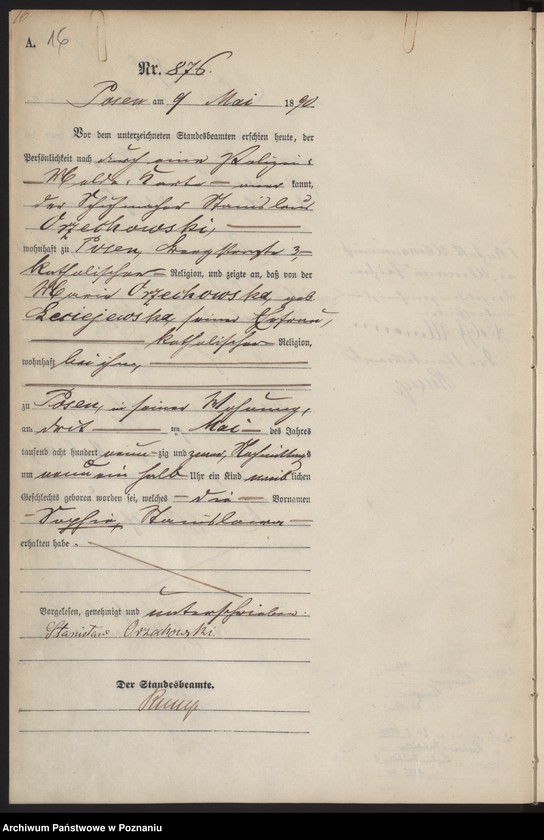 10
A. 16
Nr. 876.
Posen am 9 Mai 1890.
Vor dem unterzeichneten Standesbeamten erschien heute, der
Persönlichkeit nach durch eine Polizei-
Melde-Karte kannt,
der Schuhmacher Stanislaus
Orzechowski,
wohnhaft zu Posen, 3
katholischer Religion, und zeigte an, daß von der
Marie Orzechowska, geb.
seiner Ehefrau,
katholischer Religion,
wohnhaft bei ihm,
zu Posen, in seiner Wohnung,
am ten Mai des Jahres
tausend acht hundert neun zig und zwar, Nachmittags
um neun ein halb Uhr ein Kind weib lichen
Geschlechts geboren worden sei, welches die Vornamen
Sophie, Stanislawa
erhalten habe.
Vorgelesen, genehmigt und unterschrieben.
Stanisław Orzechowski.
Der Standesbeamte.
Archiwum Państwowe w Poznaniu